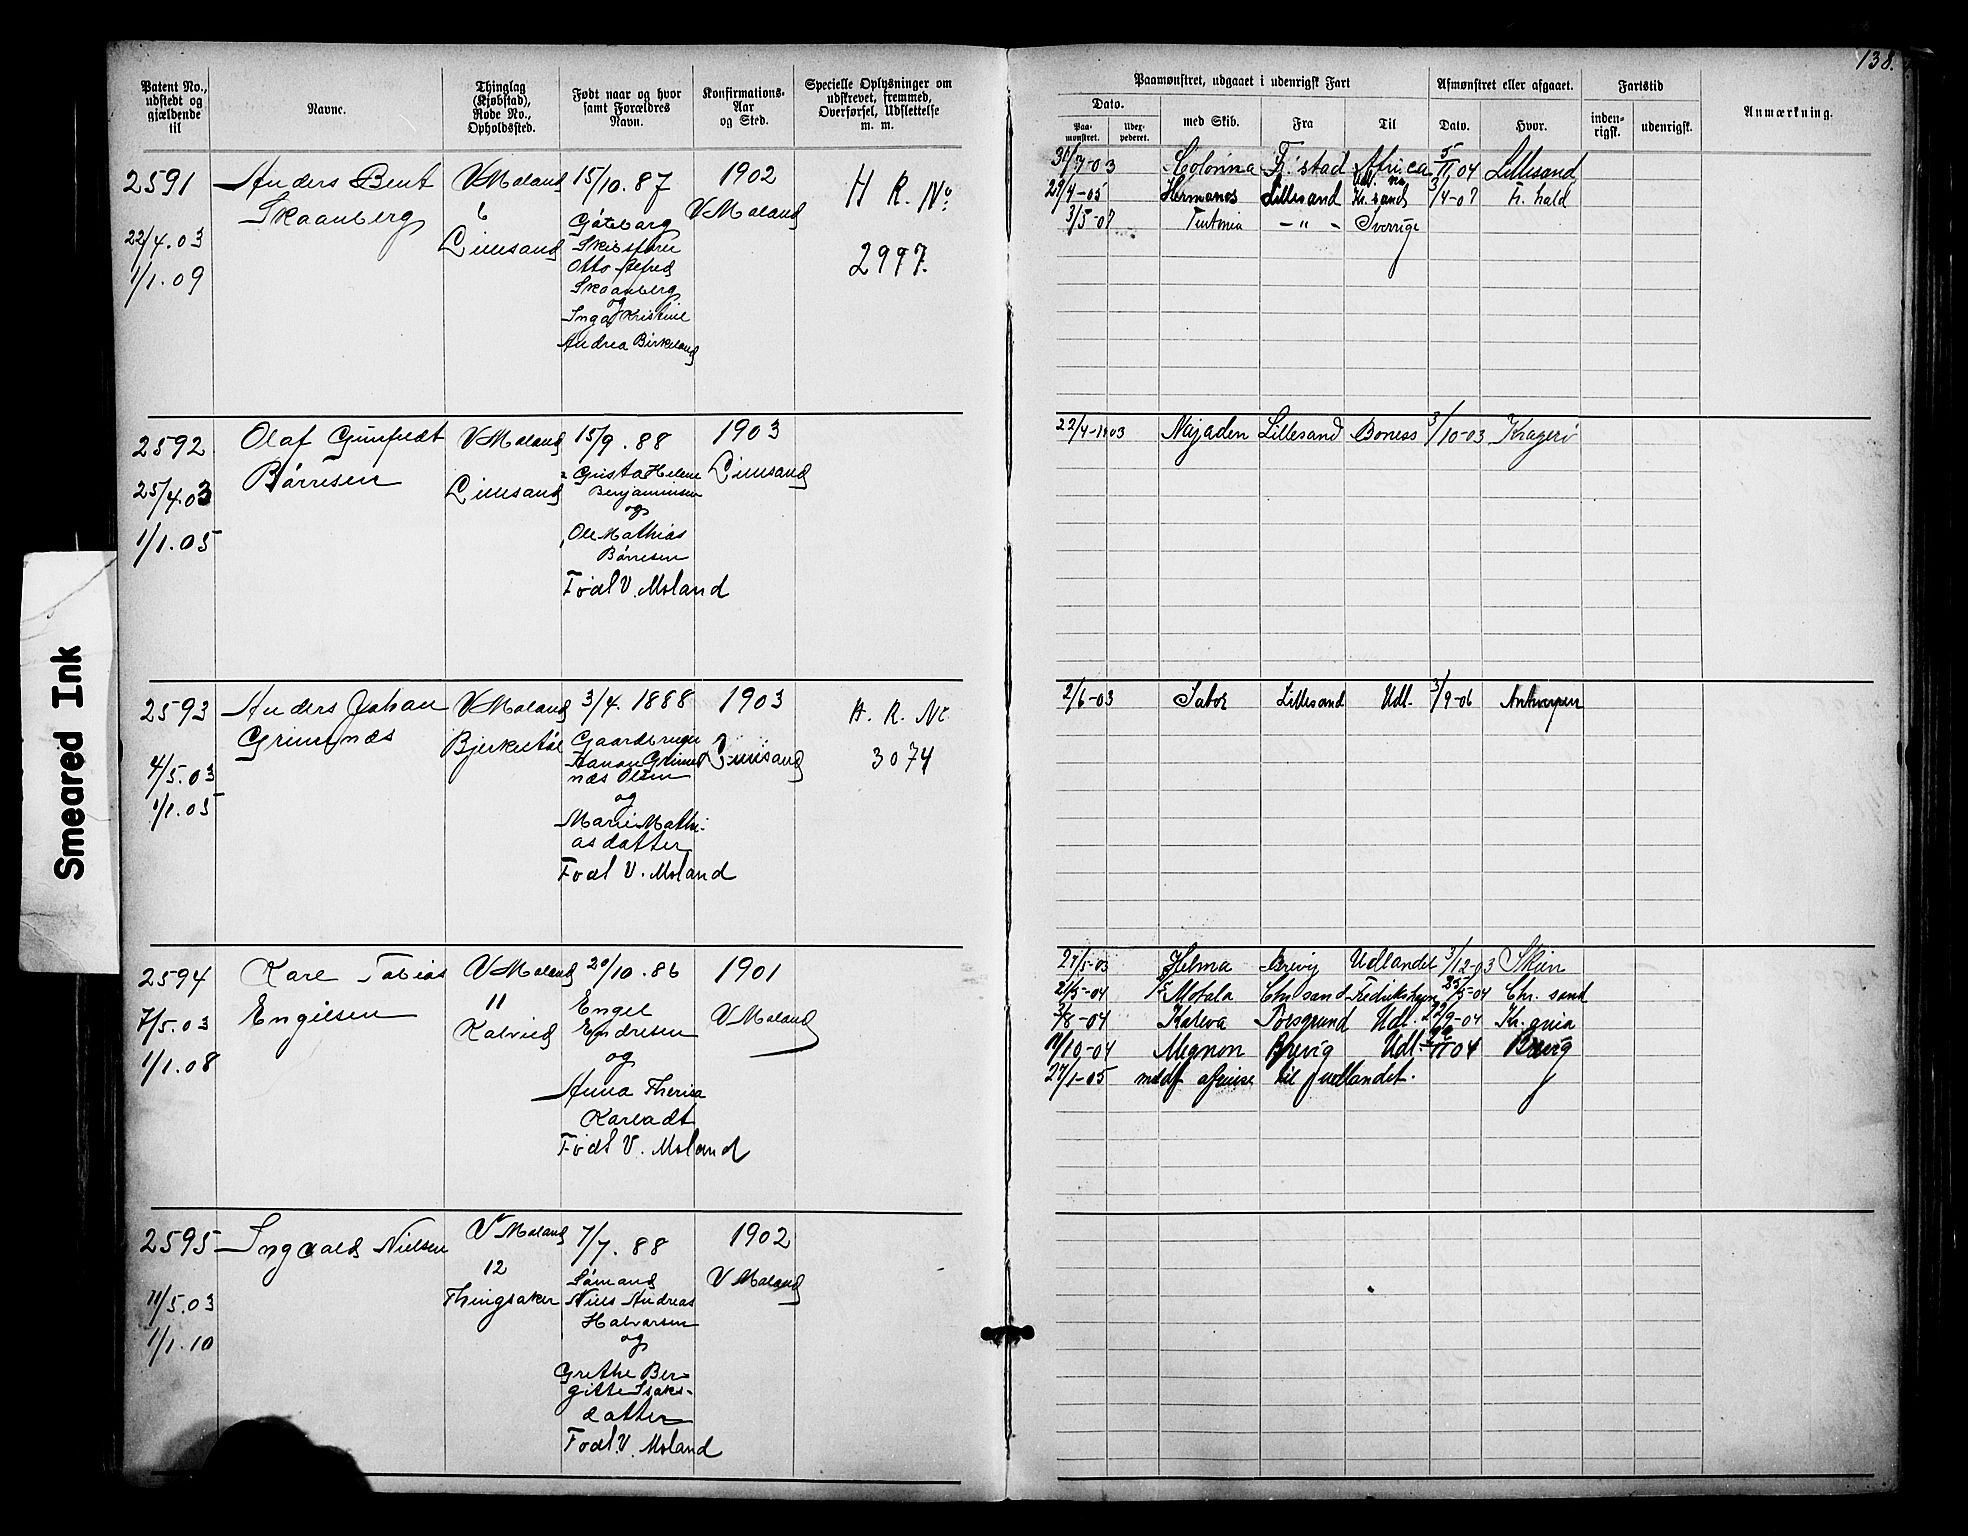 138.
Patent No., udstedt og gjældende til
Navne.
Thinglag (Kjøbstad), Rode No., Opholdssted.
Født naar og hvor samt Forældres Navn.
Konfirmations-Aar og Sted.
Specielle Oplysninger om udskrevet, fremmed, Overførsel, Udslettelse m. m.
Paamønstret, udgaaet i udenrigsk Fart
Dato.
Paa-mønstret.
Uder-pederet.
med Skib.
Fra
Til
Afmønstret eller afgaaet.
Dato.
Hvor.
Fartstid
inden-rigsk.
udenrigsk.
Anmærkning.
2591
22/4.03
1/1.09
Anders Bent
Skaanberg
V Moland
6
Lillesand
15/10.87
Gøteborg
Skibsfører
Otto Alfred
Skaanberg
og
Inga Kristine
Andrea Birkeland
1902
V Moland
H R. No:
2997.
31/7-03 Fr.stad Africa 5/11 04 Lillesand
29/4-05 Hermanos Lillesand Kr. sand 3/4-07 Fr. hald
3/5-07 Teutonia — " — Sverige
2592
25/4.03
1/1.05
Olaf
Børresen
V Moland
Lillesand
15/9.88
Gusta Helene
Benjaminsen
og
Ole Mathias
Børresen
Født V. Moland
1903
Lillesand
22/4-1903 Najaden Lillesand Boness 3/10-03 Kragerø
2593
4/5.03
1/1.05
Anders Johan
Grimnæs
V Moland
3/4.1888
Gaardbruger
Hanan Grimnæs Olsen
og
Marie Mathi-
asdatter
Født V. Moland
1903
Lillesand
H. R. No
3074
2/6-03 Lillesand Udl. 3/9-06 Antwerpen
2594
7/5.03
1/1.08
Karl Tobias
Engelsen
V Moland
11
Kalvild
20/10.86
Engel
Endresen
og
Anna Theresa
Født V. Moland
1901
V Moland
27/5-03 Helma Brevig Udlandet 3/12-03 Skien
21/5-04 Motala Chr sand Fredrikshavn 25/5-04 Chr. sand
3/8-04 Kaleva Porsgrund Udl. 22/9-04 Kr.ania
11/10-04 Mignon Brevig Udl. 04 Brevig
27/1-05 til udlandet.
2595
11/5.03
1/1.10
Ingvald Nielsen
V Moland
12
Thingsaker
7/7.88
Sømand
Niels Andreas
Halvorsen
og
Grethe Ber-
gitte Isaks-
datter
Født V. Moland
1902
V Moland
Smeared Ink